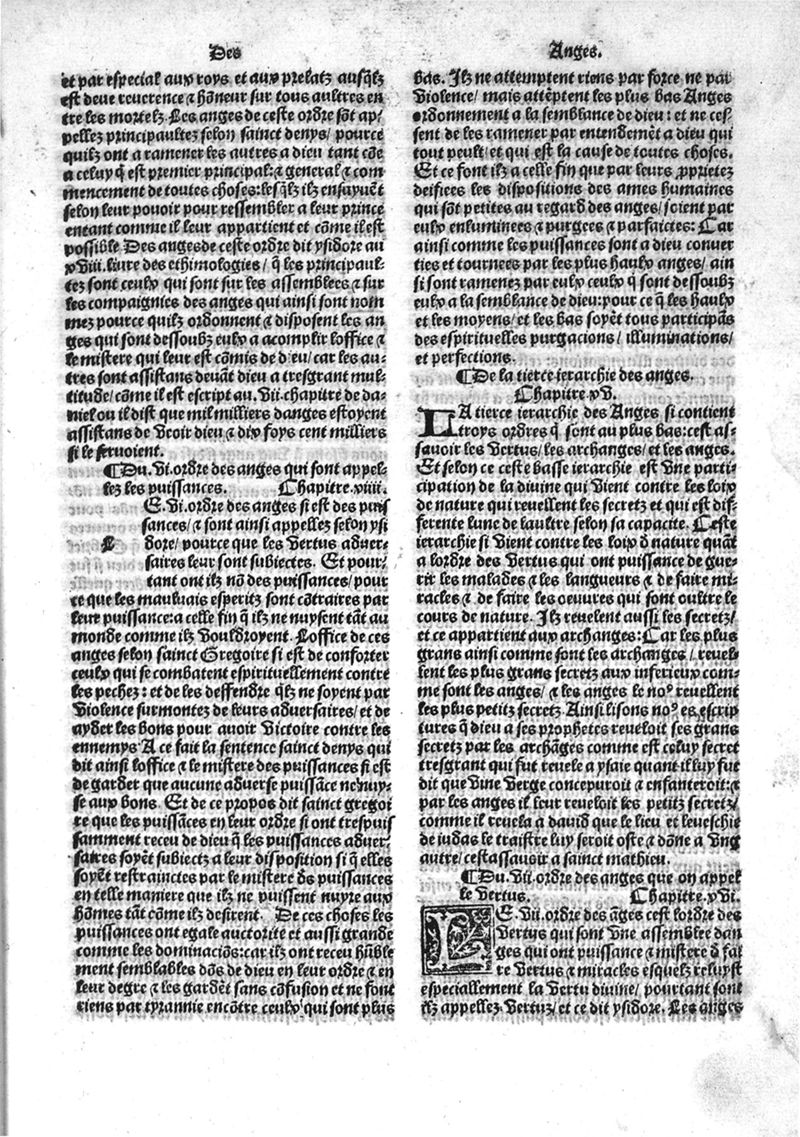 Des
Anges.
et par especial aux roys et aux prelatz ausq̃lz
est deue reverence & hõneur sur tous aultres en
tre les mortelz. Les anges de ceste ordre sõt ap/
pellez principaultez selon sainct denys/ pource
quilz ont a ramener les autres a dieu tant cõe
a celuy q̃ est premier principal: & general & com
mencement de toutes choses: lesq̃lz ilz ensuyuẽt
selon leur pouoir pour ressembler a leur prince
entant comme il leur appartient et cõme il est
possible. Des anges de ceste ordre dit ysidore au
xviii. liure des ethimologies/ q̃ les principaul-
tez sont ceulx qui sont sur les assemblees & sur
les compaignies des anges qui ainsi sont nom
mez pource quilz ordonnent & disposent les an
ges qui sont dessoubz eulx a acomplir loffice &
le mistere qui leur est cõmis de dieu/ car les au-
tres sont assistans deuãt dieu a tresgrant mul-
titude/ cõme il est escript au .vii. chapitre de da-
niel ou il dist que mil milliers danges estoyent
assistans de veoir dieu & dix foys cent milliers
si le seruoient.
¶Du .vi. ordre des anges qui sont appel-
lez les puissances. Chapitre .xiiii.
LE .vi. ordre des anges si est des puis
sances/ & sont ainsi appellez selon ysi
dore/ pource que les vertus aduer-
saires leur sont subiectes. Et pour/
tant ont ilz nõ des puissances/ pour
ce que les mauluais esperitz sont cõtraires par
leur puissance: a celle fin q̃ ilz ne nuysent tãt au
monde comme ilz vouldroyent. Loffice de ces
anges selon sainct Gregoire si est de conforter
ceulx qui se combatent espirituellement contre
les pechez: et de les deffendre q̃lz ne soyent par
violence surmontez de leurs aduersaires/ et de
ayder les bons pour auoir victoire contre les
ennemys. A ce fait la sentence sainct denys qui
dit ainsi loffice & le mistere des puissances si est
de garder que aucune aduerse puissãce ne nuy-
se aux bons. Et de ce propos dit sainct gregoi
re que les puissãces en leur ordre si ont trespuis
samment receu de dieu q̃ les puissances aduer-
saires soyẽt subiectz a leur disposition si q̃ elles
soyẽt restrainctes par le mistere ds puissances
en telle maniere que ilz ne puissent nuyre aux
hõmes tãt cõme ilz desirent. De ces choses les
puissances ont egale auctorite et aussi grande
comme les dominaciõs: car ilz ont receu hũble
ment semblables dõs de dieu en leur ordre & en
leur degre & les gardẽt sans cõfusion et ne font
riens par tyrannie encõtre ceulx qui sont plus
bas. Ilz ne attemptent riens par force ne par
violence/ mais attẽptent les plus bas Anges
ordonnement a la semblance de dieu: et ne ces-
sent de les ramener par entendemẽt a dieu qui
tout peult/ et qui est la cause de toutes choses.
Et ce font ilz a celle fin que par leurs ꝓprietez
deifiees les dispositions des ames humaines
qui sõt petites au regard des anges/ soient par
eulx enluminees & purgees & parfaictes: Car
ainsi comme les puissances sont a dieu conuer
ties et tournees par les plus haulx anges/ ain
si sont ramenez par eulx ceulx q̃ sont dessoubz
eulx a la semblance de dieu: pour ce q̃ les haulx
et les moyens/ et les bas soyẽt tous participãs
des espirituelles purgacions/ illuminations/
et perfections.
¶De la tierce ierarchie des anges.
Chapitre .xv.
LA tierce ierarchie des Anges si contient
troys ordres q̃ sont au plus bas: cest as-
sauoir les vertus/ les archanges/ et les anges.
Et selon ce ceste basse ierarchie est vne parti-
cipation de la divine qui vient contre les loix
de nature qui reuellent les secretz et qui est dif-
ferente lune de laultre selon sa capacite. Ceste
ierarchie si vient contre les loix d nature quãt
a lordre des vertus qui ont puissance de gue-
rir les malades & les langueurs & de faire mi-
racles & de faire les oeuures qui sont oultre le
cours de nature. Ilz reuelent aussi les secretz/
et ce appartient aux archanges: Car les plus
grans ainsi comme sont les archanges/ reuel
lent les plus grans secretz aux inferieux com-
me sont les anges/ & les anges le noꝰ reuellent
les plus petitz secretz. Ainsi lisons noꝰ es escrip
tures q̃ dieu a ses prophetes reueloit ses grans
secretz par les archãges comme est celuy secret
tresgrant qui fut reuele a ysaie quant il luy fut
dit que vne verge conceputoit & enfanteroit: &
par les anges il leur reueloit les petitz secretz/
comme il reuela a dauid que le lieu et leueschie
de iudas le traistre luy seroit oste & dõne a vng
autre/ cest assauoir a sainct mathieu.
¶Du .vii. ordre des anges que on appel
le vertus. Chapitre .xvi.
LE .vii. ordre des ãges cest lordre des
vertus qui sont vne assemblee dan
ges qui ont puissance & mistere d fai
re vertus & miracles esquelz reluyst
especiallement la vertu diuine/ pourtant sont
ilz appellez vertuz/ et ce dit ysidore. Les ãges